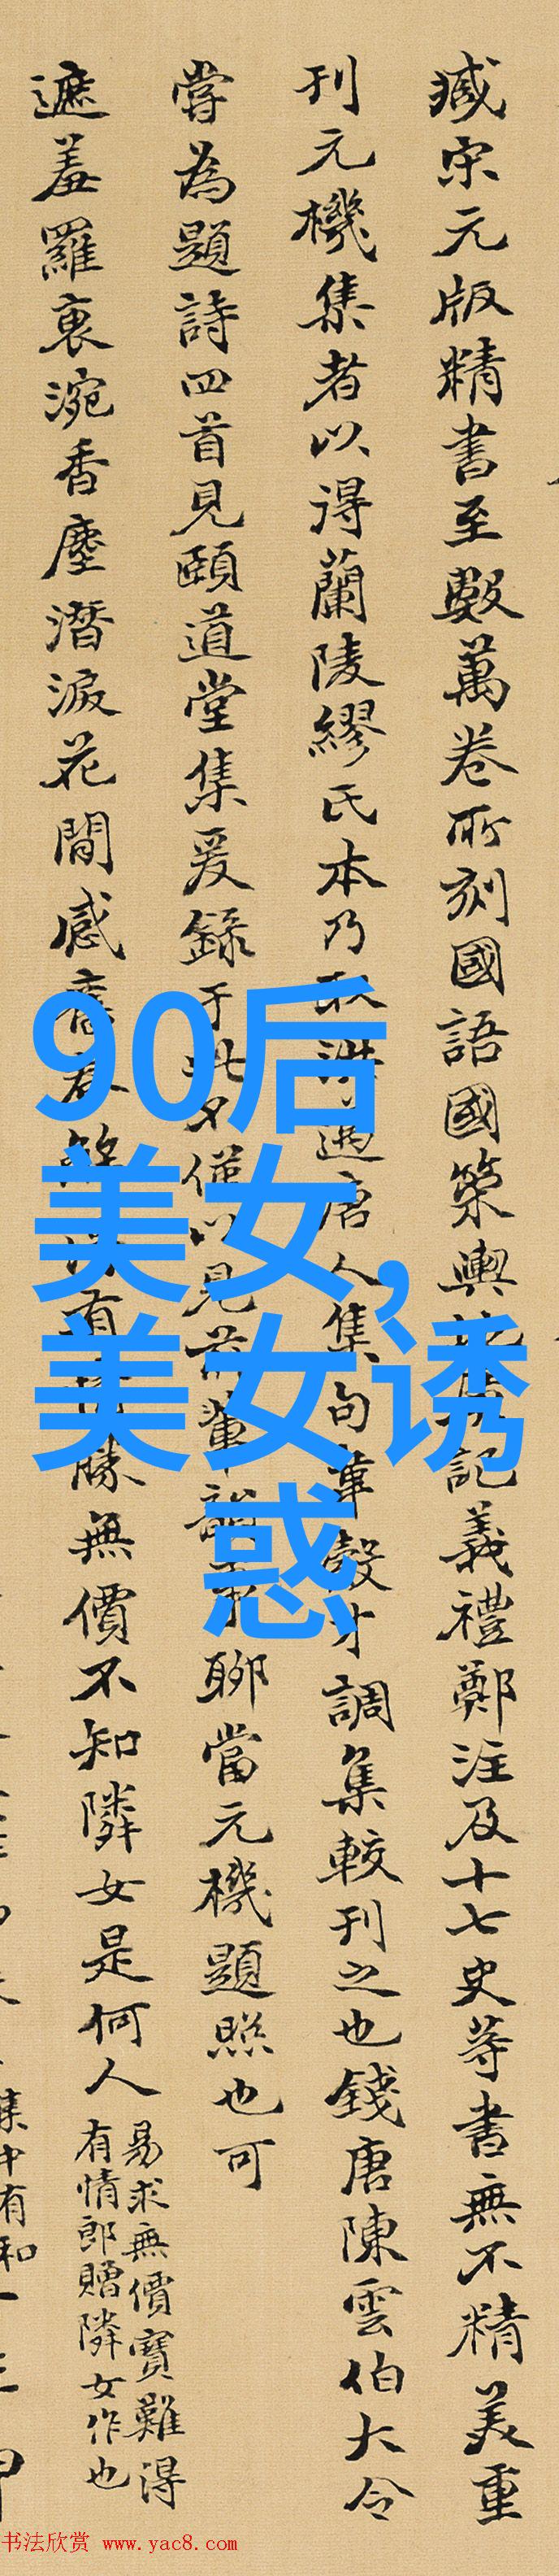 臧宋元版精書至數萬卷所刻國語國策輿記義禮鄭注及十七史等書無不精美重
刊元機集者以得蘭陵繆氏本乃唐人集句韋縠才調集較刊之也錢唐陳雲伯大令
嘗為題詩四首見頤道堂集爰錄于此見前輩聊當元機題照也可
遮羞羅裏涴香塵潛淚花間感舊有勝無價不知隣女是何人
易求無價寶難得
有情郎贈隣女作也
90后
美女,
美女诱
惑
集中有和一
书法欣赏 www.yac8.com